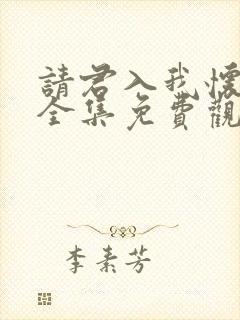 請君入我懷
全集免費觀
李素芳